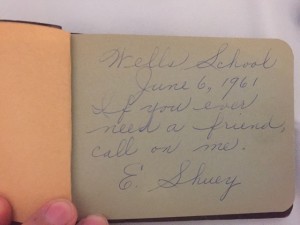 Wells School
June 6, 1961
If you ever
need a friend,
call on me.
E. Shuey